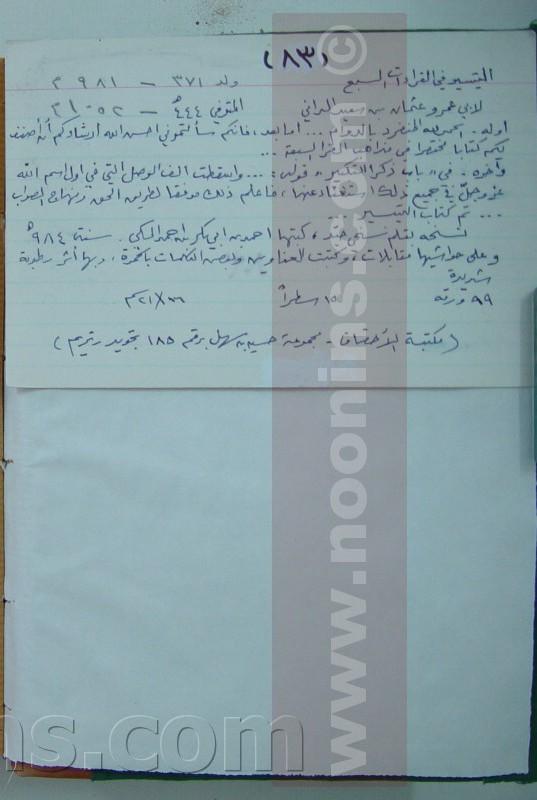 (٨٣)
التيسير في القراءات السبع ولد ٣٧١ – ٩٨١ م
لأبي عمرو عثمان بن سعيد الداني المتوفى ٤٤٤ هـ – ١٠٥٢ م
أوله – الحمد لله المنفرد بالدوام ... أما بعد، فإنكم سألتموني أحسن الله إرشادكم أن أصنف
لكم كتابا مختصرا في مذاهب القراء السبعة ...
وآخره – في « باب ذكر التكبير » قوله: ... وأسقطت ألف الوصل التي في أول اسم الله
عز وجل في جميع ذلك استغناء عنها، فاعلم ذلك موفقا لطريق الحق ومنهاج الصواب
... تم كتاب التيسير ...
نسخة بقلم نسخي جيد، كتبها أحمد بن أبي بكر بن أحمد المكي. سنة ٩٨٤ هـ
وعلى حواشيها مقابلات، وكتبت العناوين وبعض الكلمات بالحمرة، وبها أثر رطوبة
شديدة
٩٩ ورقة ١٥ سطراً ٢١X١٦ سم
(مكتبة الأحقاف – مجموعة حسين بن سهل برقم ١٨٥ تجويد - تريم)
© www.noonins.com
ns.com